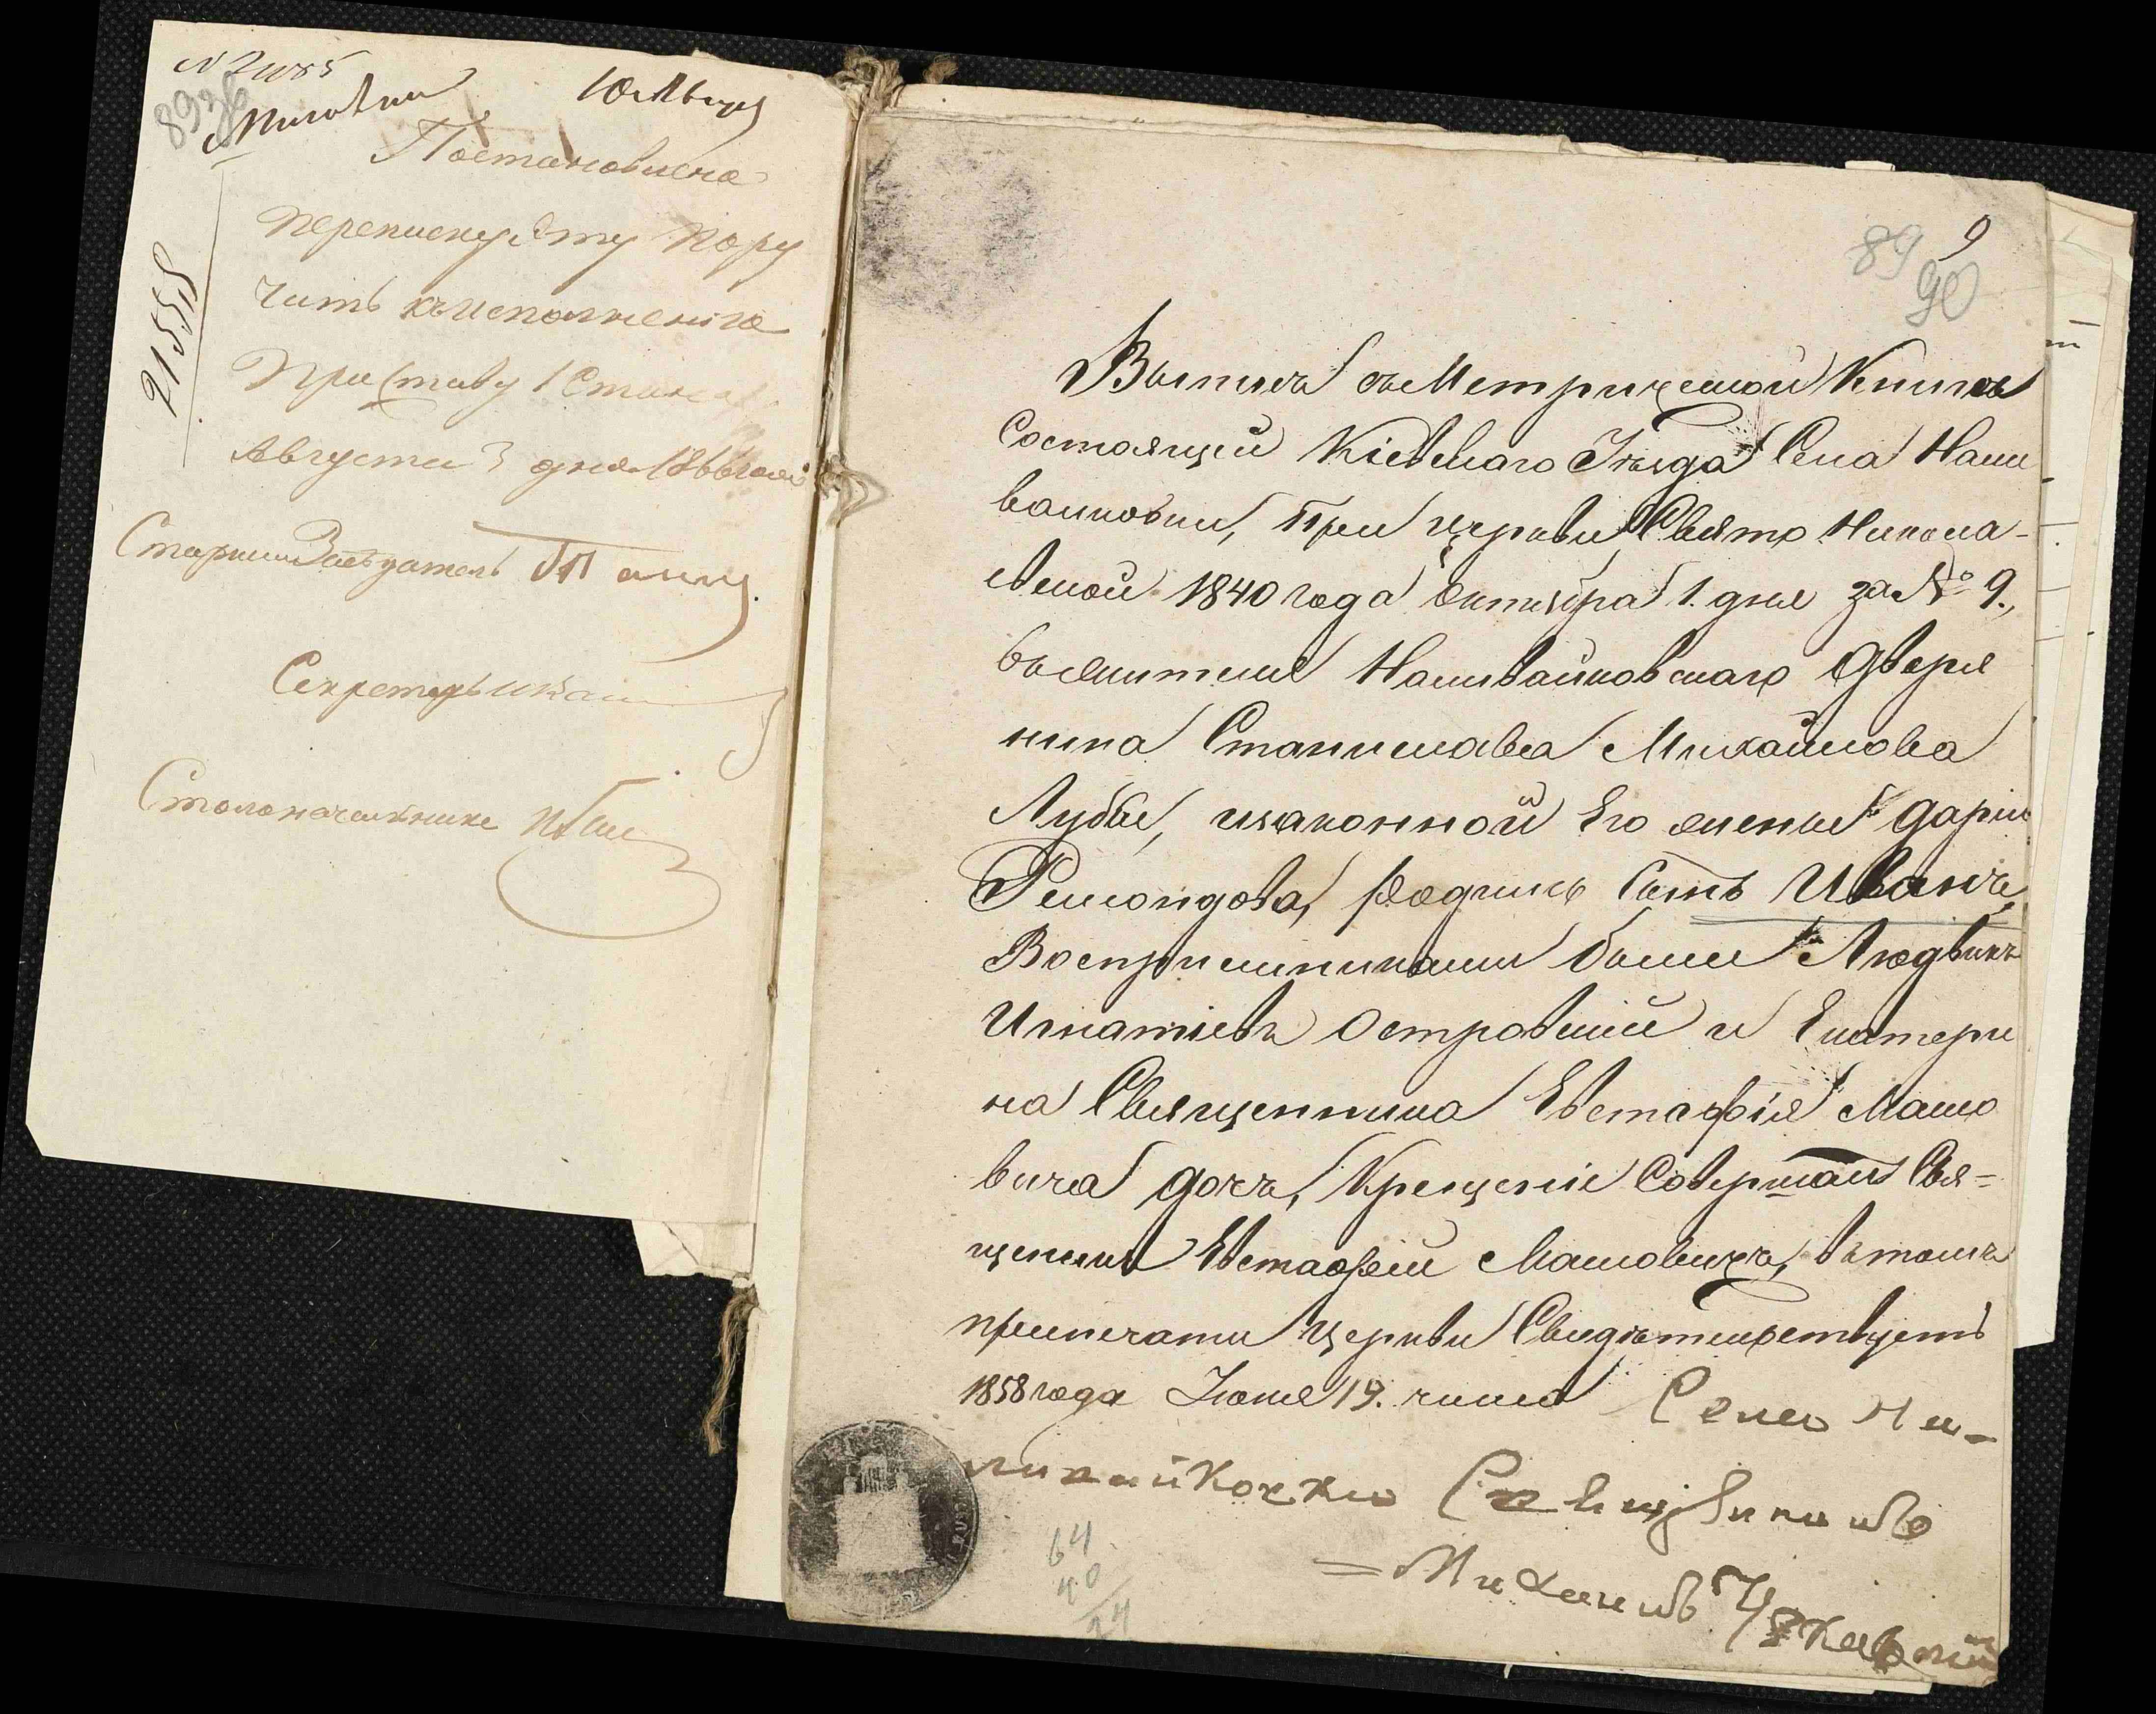 N 21085
8936
Юльця
Постановлено
переписку эту пору
чить къ исполненію
Приставу 1 Стана
Августа 3 дня 1866 года
Старший Засѣдатель
Секретарь
Столоначальникъ
21558
9
89
90
Выпись съ Метрической Книги
Состоящей Кіевскаго Уѣзда Села Нали
вайковки, При церкви Свято Никола-
евской 1840 года Октября 1. дня за № 9.,
въ жителя Наливайковскаго Дворя
нина Станислава Михайлова
Лубы, изаконной Его жены Даріи
Ремондова, родился Сынъ Иванъ,
Воспріемниками были Людвикъ
Игнатіевъ Островскій и Екатери
на Священника Евстафія Машо
вича дочь, Крещеніе Совершалъ Свя=
щеникъ Евстафій Машовичъ, въ томъ
припечати Церкви Свидѣтельствуетъ
1858 года Іюня 19. числа Село На-
ливайковки Священникъ
= Михаилъ
64
40
24